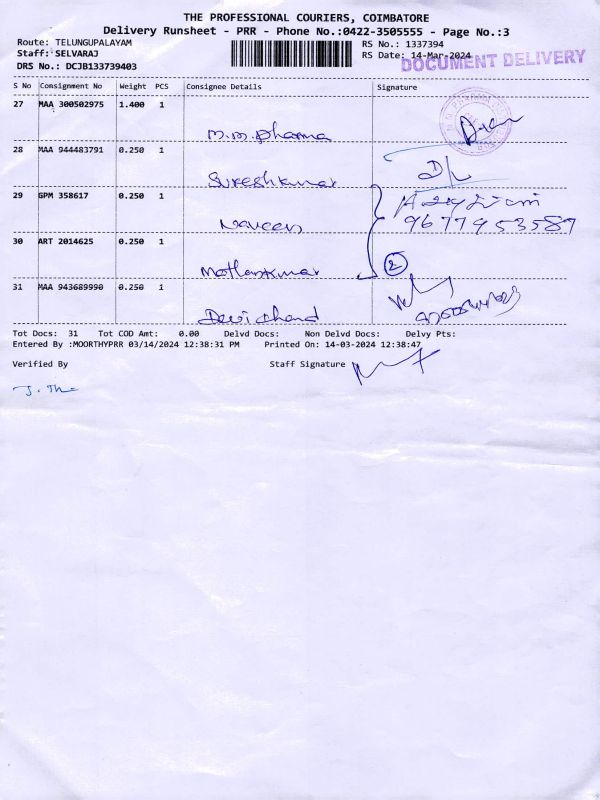 THE PROFESSIONAL COURIERS, COIMBATORE
Delivery Runsheet - PRR - Phone No.:0422-3505555 - Page No.:3
Route: TELUNGUPALAYAM
RS No.: 1337394
Staff: SELVARAJ
RS Date: 14-Mar-2024
DOCUMENT DELIVERY
DRS No.: DCJB133739403
S No Consignment No Weight PCS Consignee Details Signature
27 MAA 300502975 1.400 1
m.m.pharma
28 MAA 944483791 0.250 1
Sureshkumar
29 GPM 358617 0.250 1
9677953587
Naveen
30 ART 2014625 0.250 1
2
31 MAA 943689990 0.250 1
Devi chand
Tot Docs: 31 Tot COD Amt: 0.00 Delvd Docs: Non Delvd Docs: Delvy Pts:
Entered By :MOORTHYPRR 03/14/2024 12:38:31 PM Printed On: 14-03-2024 12:38:47
Verified By Staff Signature